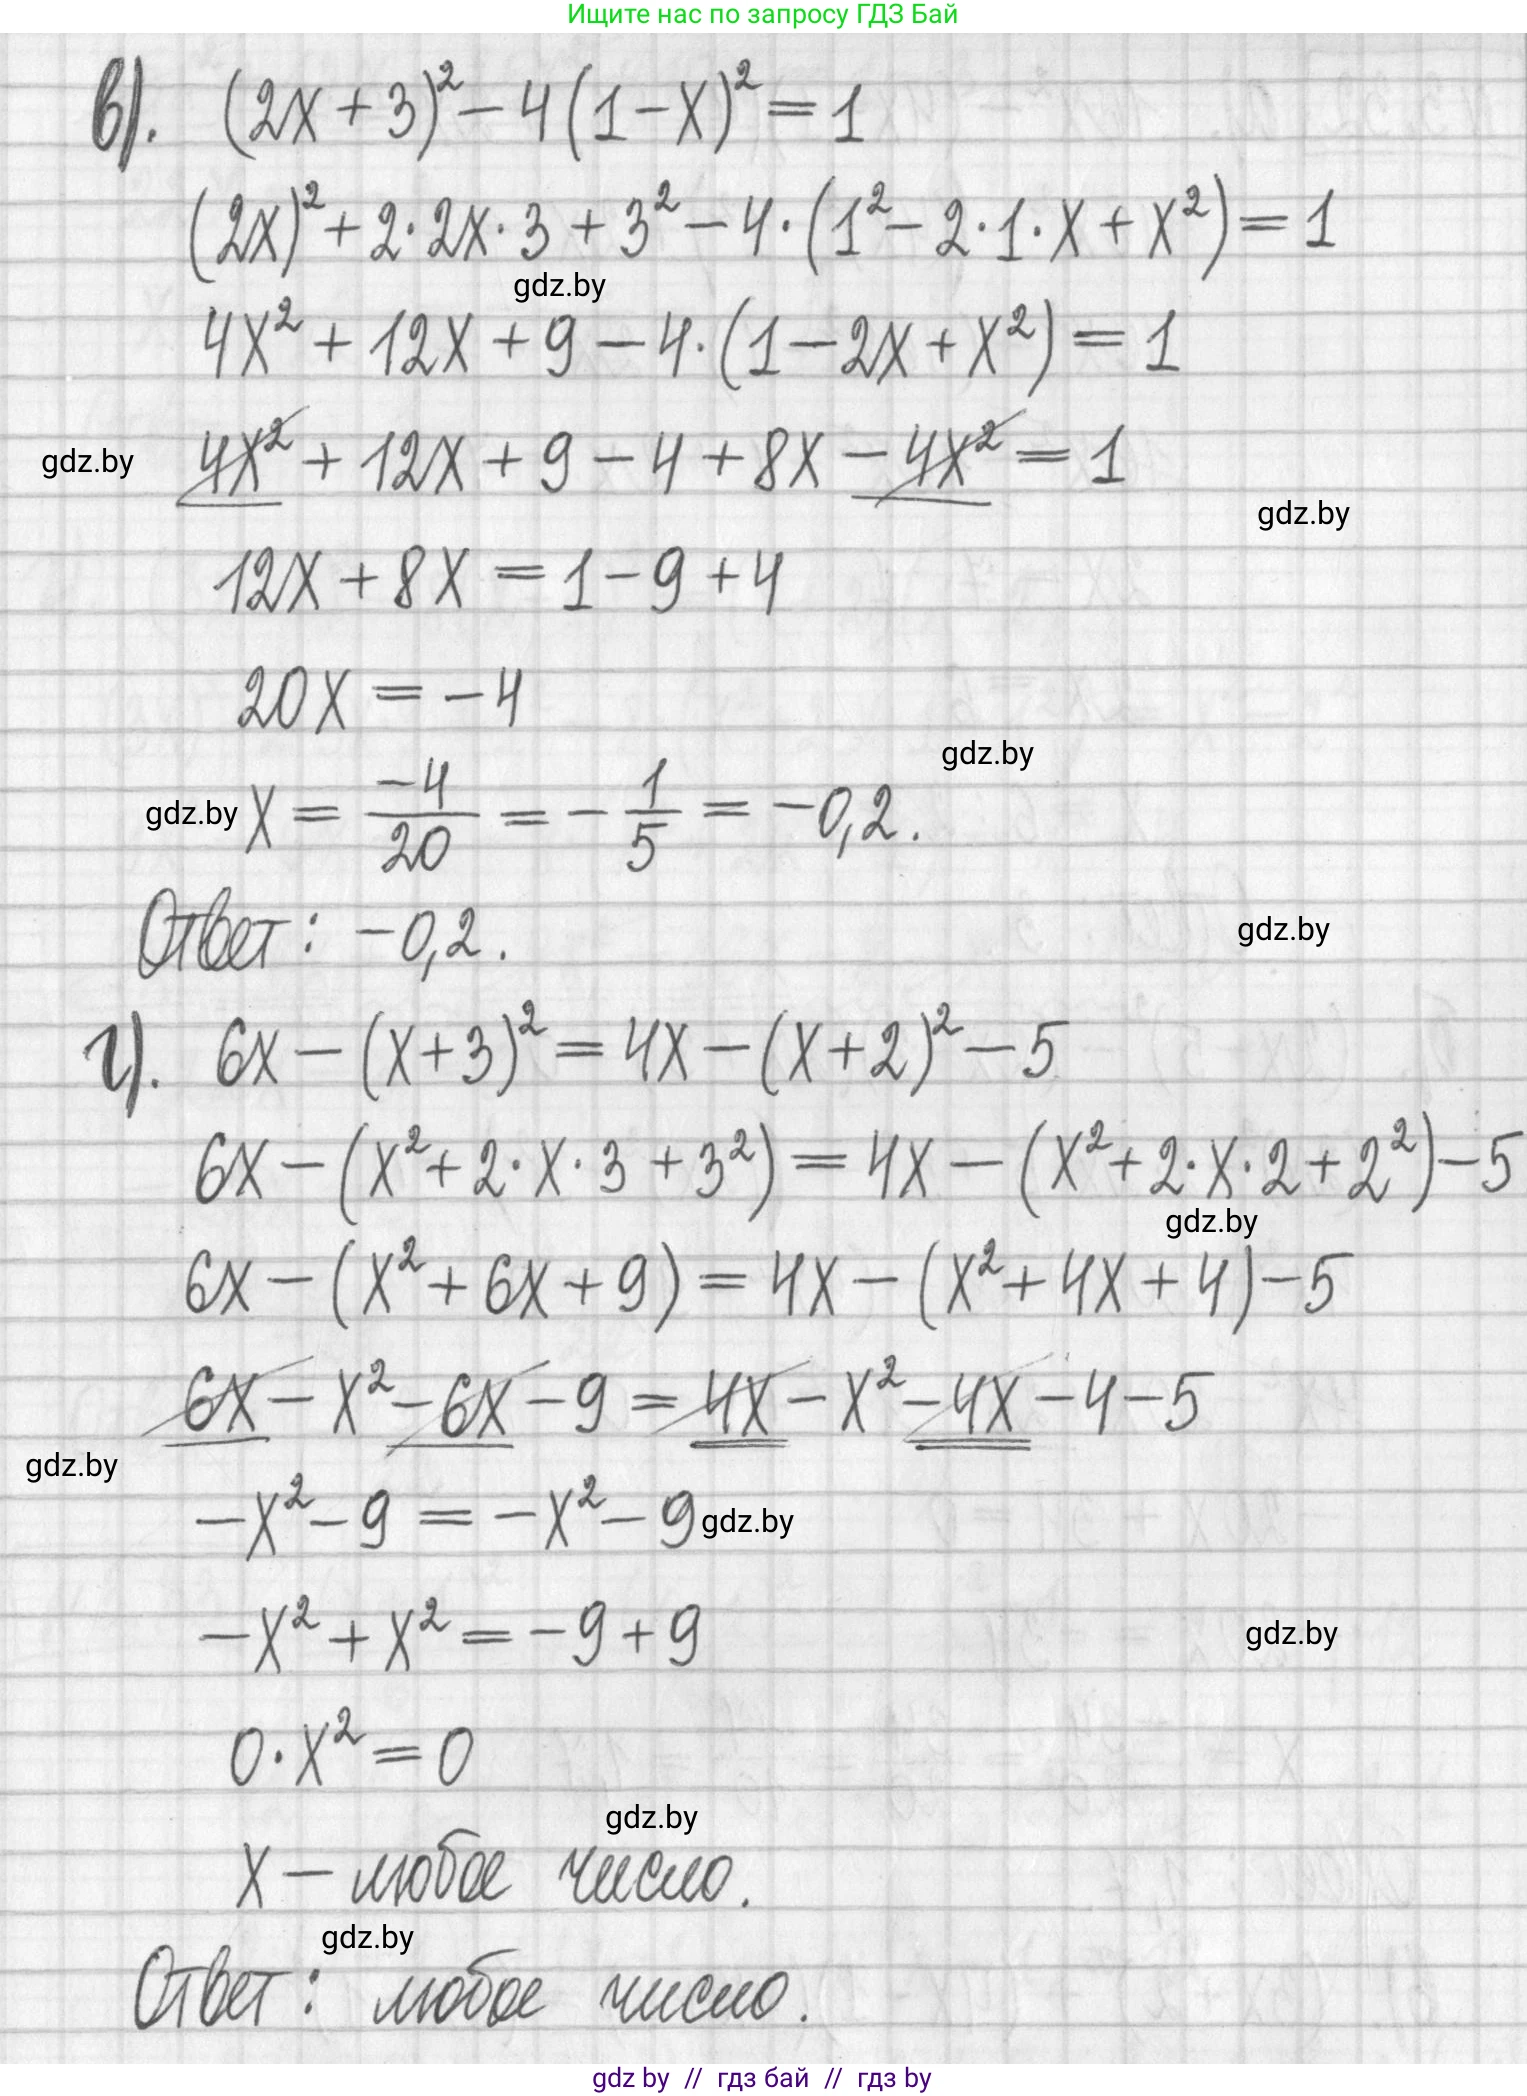 Ищите нас по запросу ГДЗ Бай
в). (2x + 3)² − 4(1 − x)² = 1
(2x)² + 2·2x·3 + 3² − 4·(1² − 2·1·x + x²) = 1
gdz.by
4x² + 12x + 9 − 4·(1 − 2x + x²) = 1
gdz.by 4x² + 12x + 9 − 4 + 8x − 4x² = 1
gdz.by
12x + 8x = 1 − 9 + 4
20x = −4
gdz.by
gdz.by x = −4/20 = −1/5 = −0,2.
Ответ: −0,2.
gdz.by
г). 6x − (x + 3)² = 4x − (x + 2)² − 5
6x − (x² + 2·x·3 + 3²) = 4x − (x² + 2·x·2 + 2²) − 5
gdz.by
6x − (x² + 6x + 9) = 4x − (x² + 4x + 4) − 5
6x − x² − 6x − 9 = 4x − x² − 4x − 4 − 5
gdz.by
−x² − 9 = −x² − 9 gdz.by
−x² + x² = −9 + 9
gdz.by
0·x² = 0
gdz.by
x − любое число.
gdz.by
Ответ: любое число.
gdz by // гдз бай // гдз by